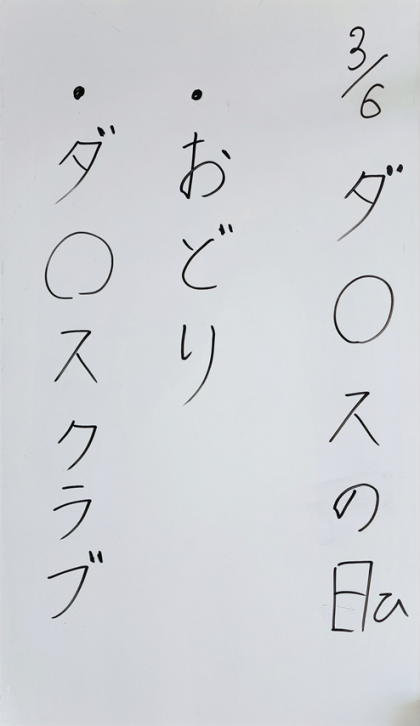 3/6 ダ〇スの日ひ
・おどり
・ダ〇スクラブ